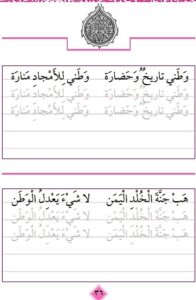 وَطَني تاريخٌ وَحَضارَة وَطَني لِلأَمْجادِ مَنارَة
وَطَني تاريخٌ وَحَضارَة وَطَني لِلأَمْجادِ مَنارَة
وَطَني تاريخٌ وَحَضارَة وَطَني لِلأَمْجادِ مَنارَة
هَبْ جَنَّةَ الْخُلْدِ الْيَمَن لا شَيْءَ يَعْدِلُ الْوَطَن
هَبْ جَنَّةَ الْخُلْدِ الْيَمَن لا شَيْءَ يَعْدِلُ الْوَطَن
هَبْ جَنَّةَ الْخُلْدِ الْيَمَن لا شَيْءَ يَعْدِلُ الْوَطَن
٣٦